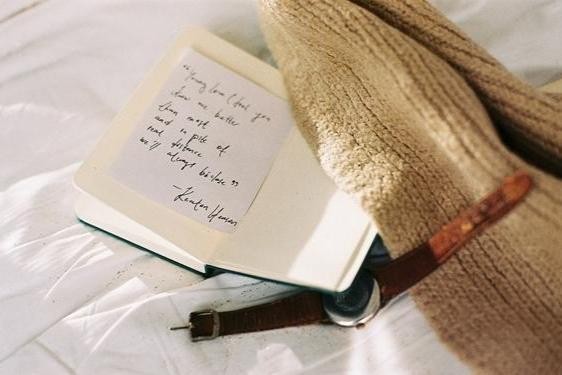 "Young love I feel you
know me better
than most
and in spite of
real distance
we'll always be close"
—Keaton Henson